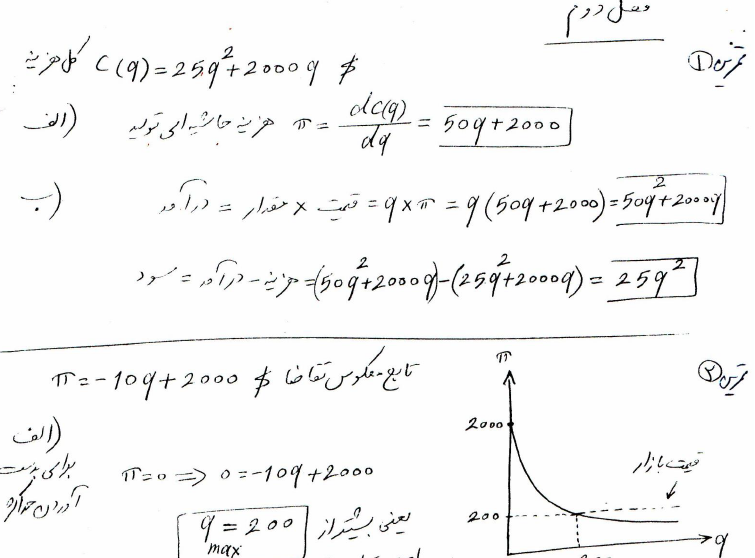 فصل دوم
تمرین ①
کل هزینه C(q) = 25q² + 2000q $
الف) هزینه حاشیه‌ای تولید π = dC(q)/dq = 50q + 2000
ب) درآمد = مقدار × قیمت = q × π = q(50q + 2000) = 50q² + 2000q
سود = درآمد - هزینه = (50q² + 2000q) - (25q² + 2000q) = 25q²
تمرین ②
تابع معکوس تقاضا π = -10q + 2000 $
الف) برای بدست
آوردن حداکثر
π = 0 => 0 = -10q + 2000
q max = 200 یعنی بیشتر از
π
2000
200
قیمت بازار
q